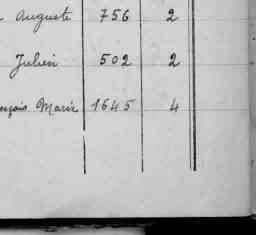 Auguste 756 2
Julien 502 2
nçois Marie 1645 4